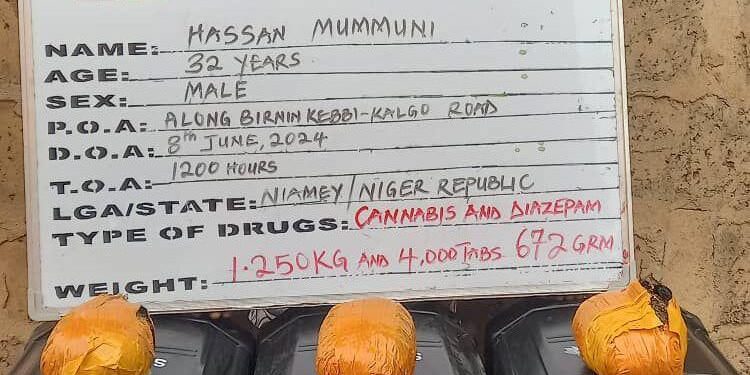 NAME: HASSAN MUMMUNI
AGE: 32 YEARS
SEX: MALE
P.O.A: ALONG BIRNIN KEBBI-KALGO ROAD
D.O.A: 8TH JUNE, 2024
T.O.A: 1200 HOURS
LGA/STATE: NIAMEY/NIGER REPUBLIC
TYPE OF DRUGS: CANNABIS AND DIAZEPAM
WEIGHT: 1.250KG AND 4,000TABS 672GRM